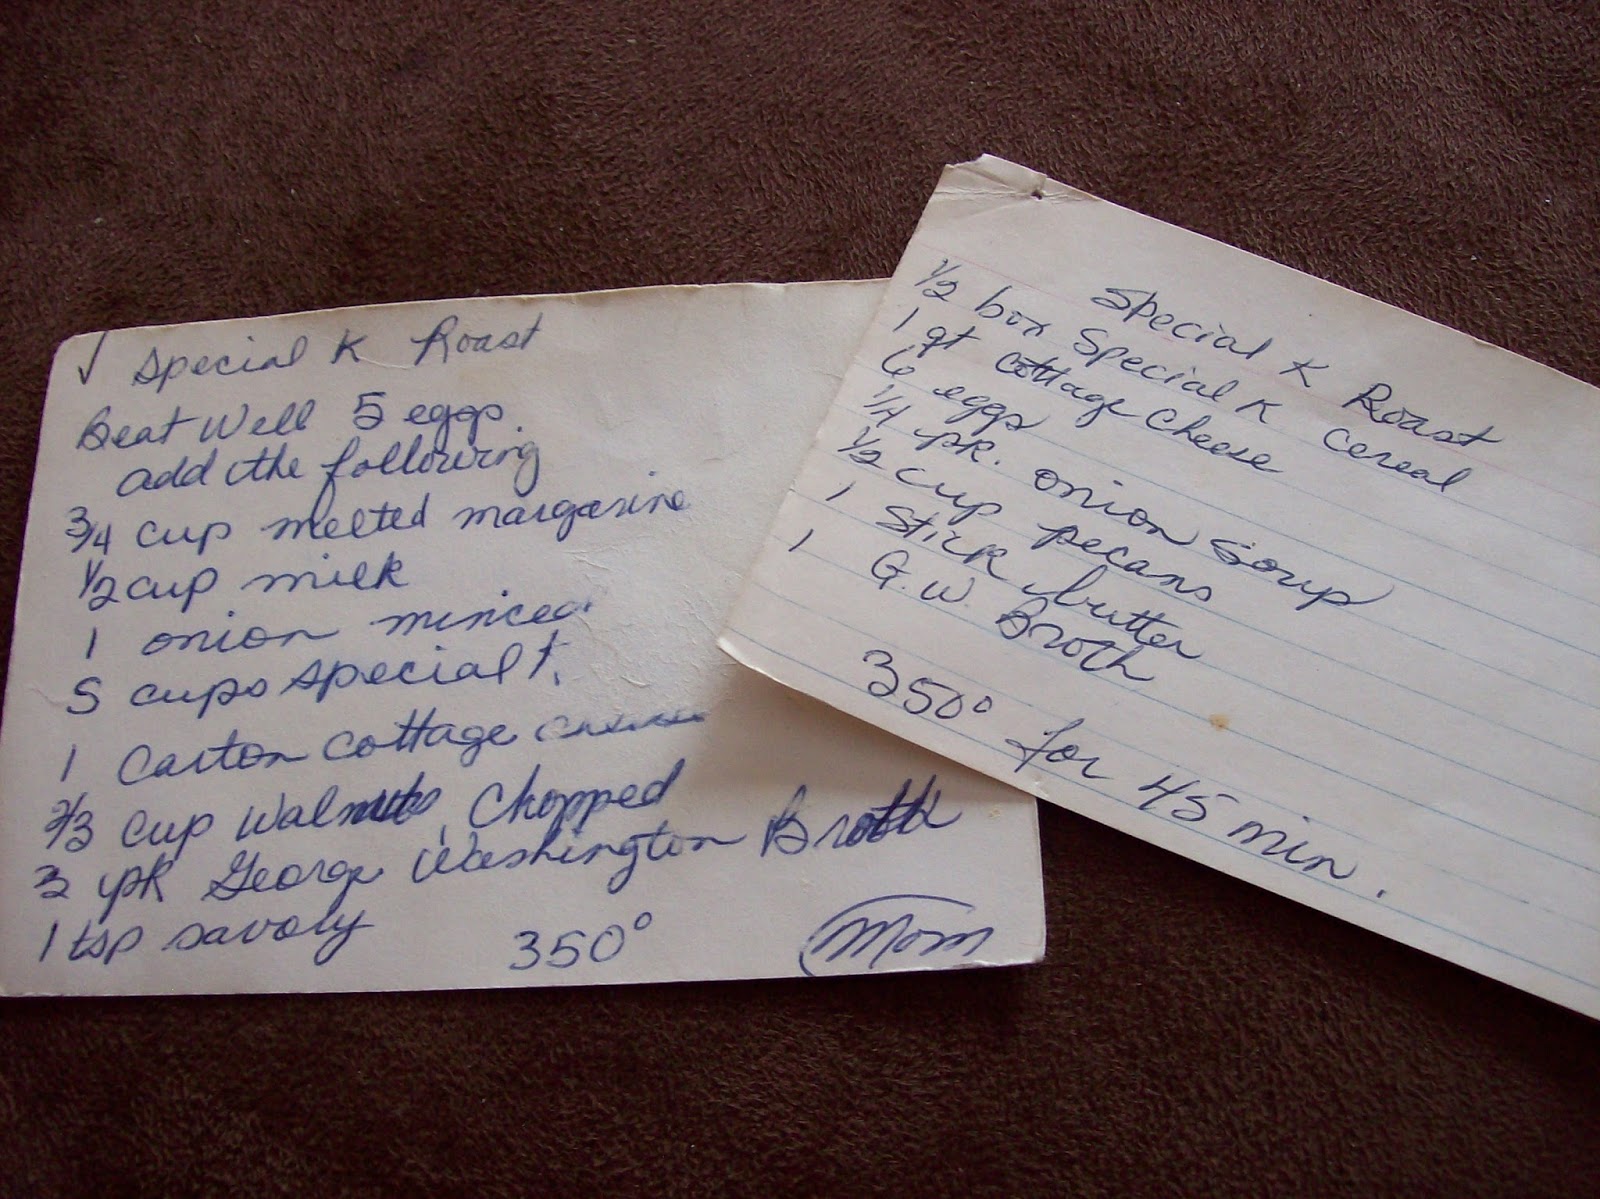 ✓ Special K Roast
Beat Well 5 eggs.
add the following
3/4 cup melted margarine
1/2 cup milk
1 onion minced
5 cups special K.
1 Carton Cottage cheese
2/3 cup walnuts, chopped
pk George Washington Broth
1 tsp savory 350°
Mom
Special K Roast
1/2 box Special K cereal
1 qt cottage cheese
6 eggs
1/4 pk. onion soup
1/2 cup pecans
1 stick butter
1 G.W. Broth
350° for 45 min.